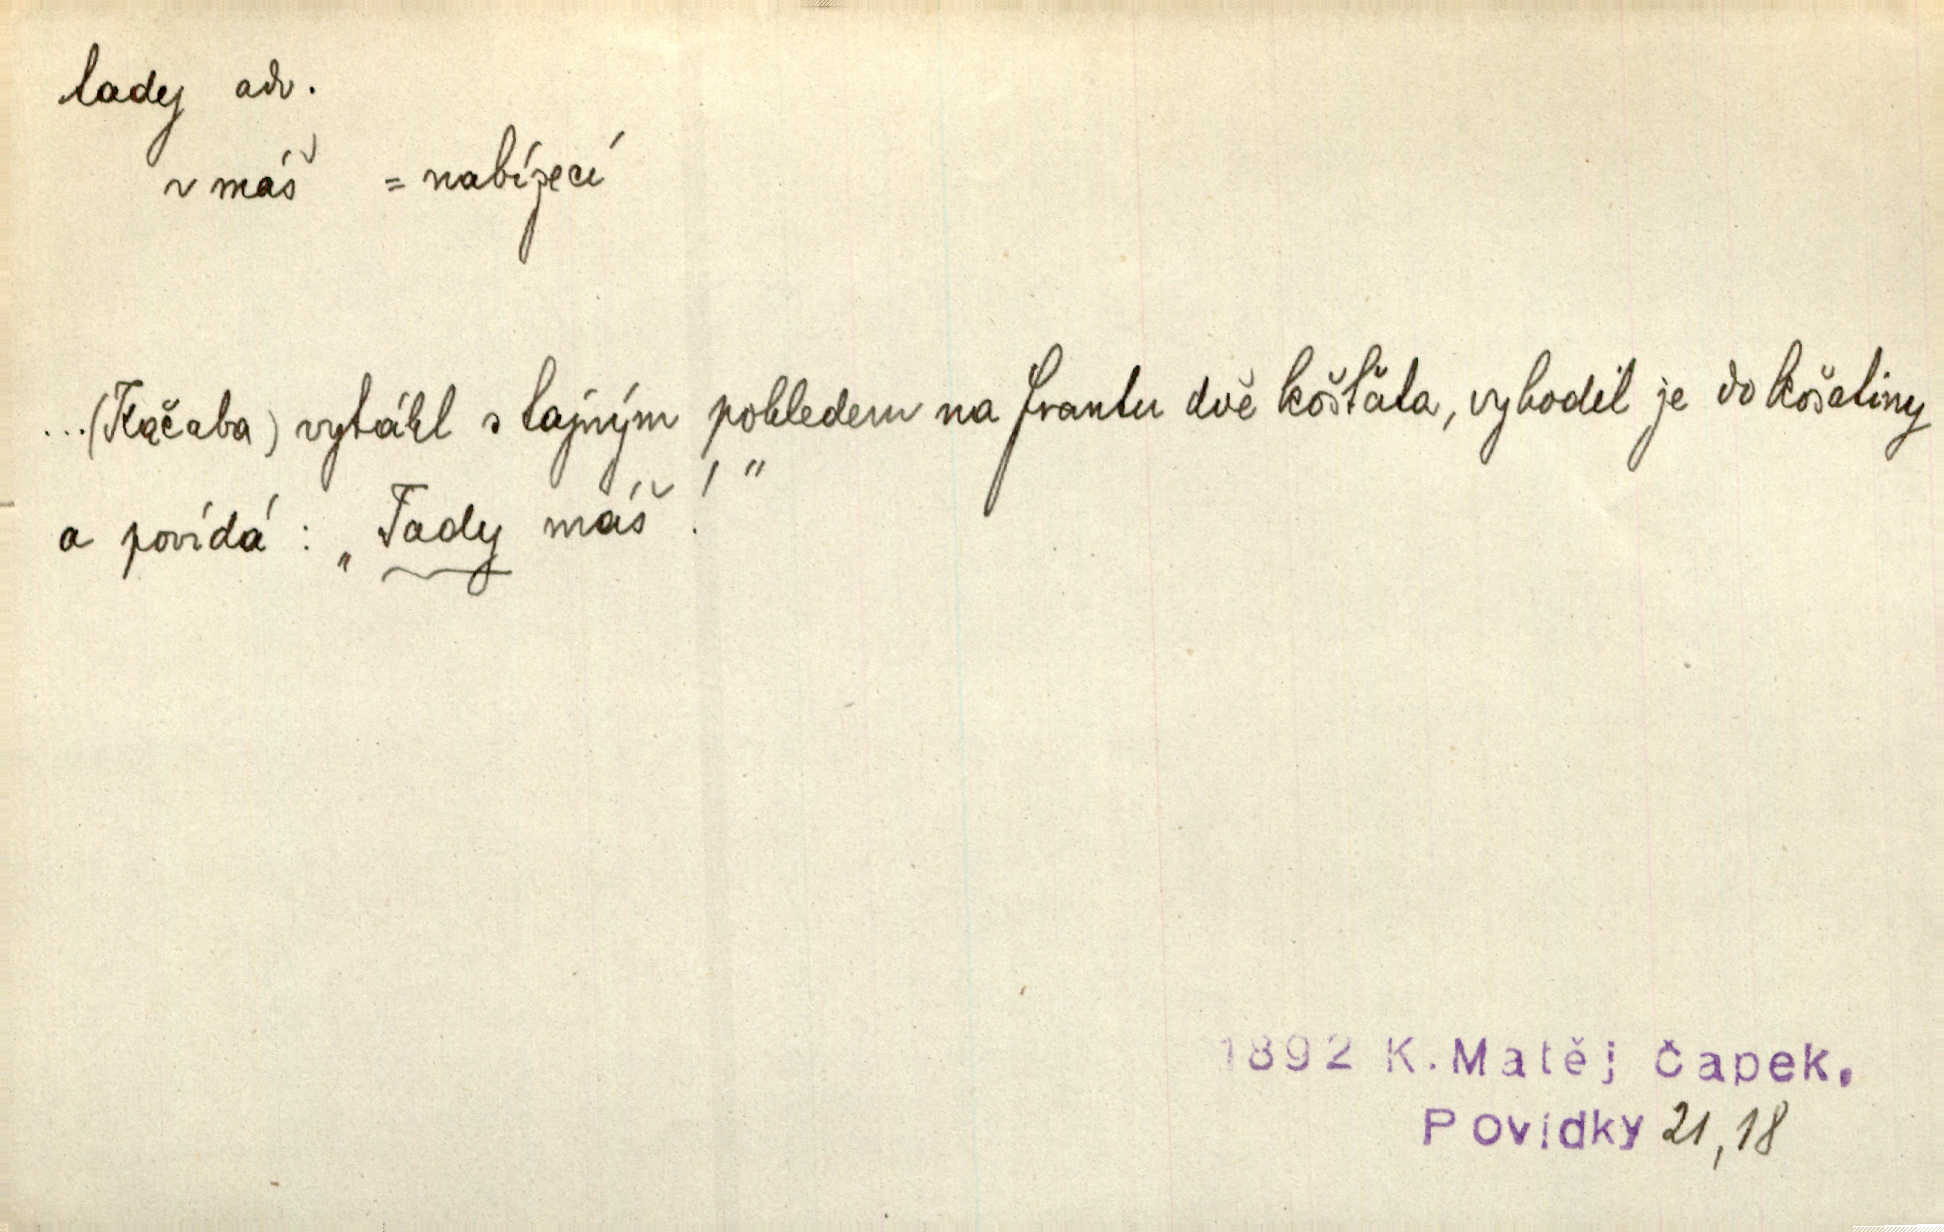 tady adv.
~ máš = nabízecí
...(Kačaba) vytáhl s tajným pohledem na Frantu dvě košťála, vyhodil je do košatiny
a povídá: „Tady máš!"
1892 K. Matěj Čapek.
Povídky 21,18